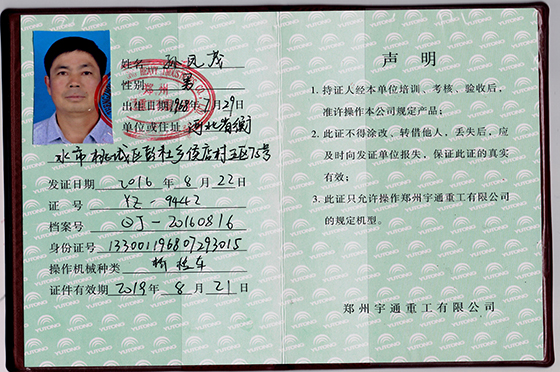 姓名 孙凤茂
性别 男
出生日期 1968年7月29日
单位或住址 河北省衡
水市桃城区彭杜乡侯店村三区75号
发证日期 2016 年 8 月 22 日
证 号 YZ-9442
档案号 QJ-20160816
身份证号 133001196807293015
操作机械种类 桥检车
证件有效期 2019年 8 月 21 日
声 明
1. 持证人经本单位培训、考核、验收后,
准许操作本公司规定产品;
2. 此证不得涂改、转借他人,丢失后,应
及时向发证单位报失,保证此证的真实
有效;
3. 此证只允许操作郑州宇通重工有限公司
的规定机型。
郑州宇通重工有限公司
YUTONG